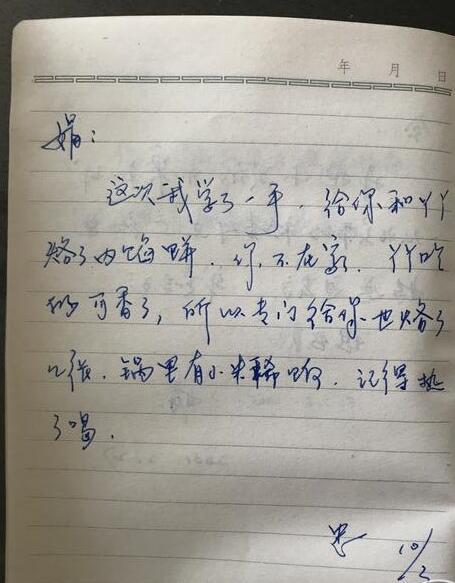 年 月 日
娟：
这次我学了一手，给你和丫丫
烙了肉馅饼，你不在家，丫丫吃
的可香了，所以专门给你也烙了
几张，锅里有小米稀饭，记得热
了喝．
10/2